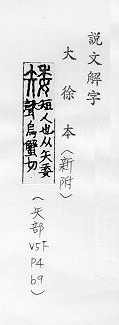 説文解字
大徐本（新附）
矮 短人也从矢委
聲烏蟹切
（矢部
V5F
P4
b9）